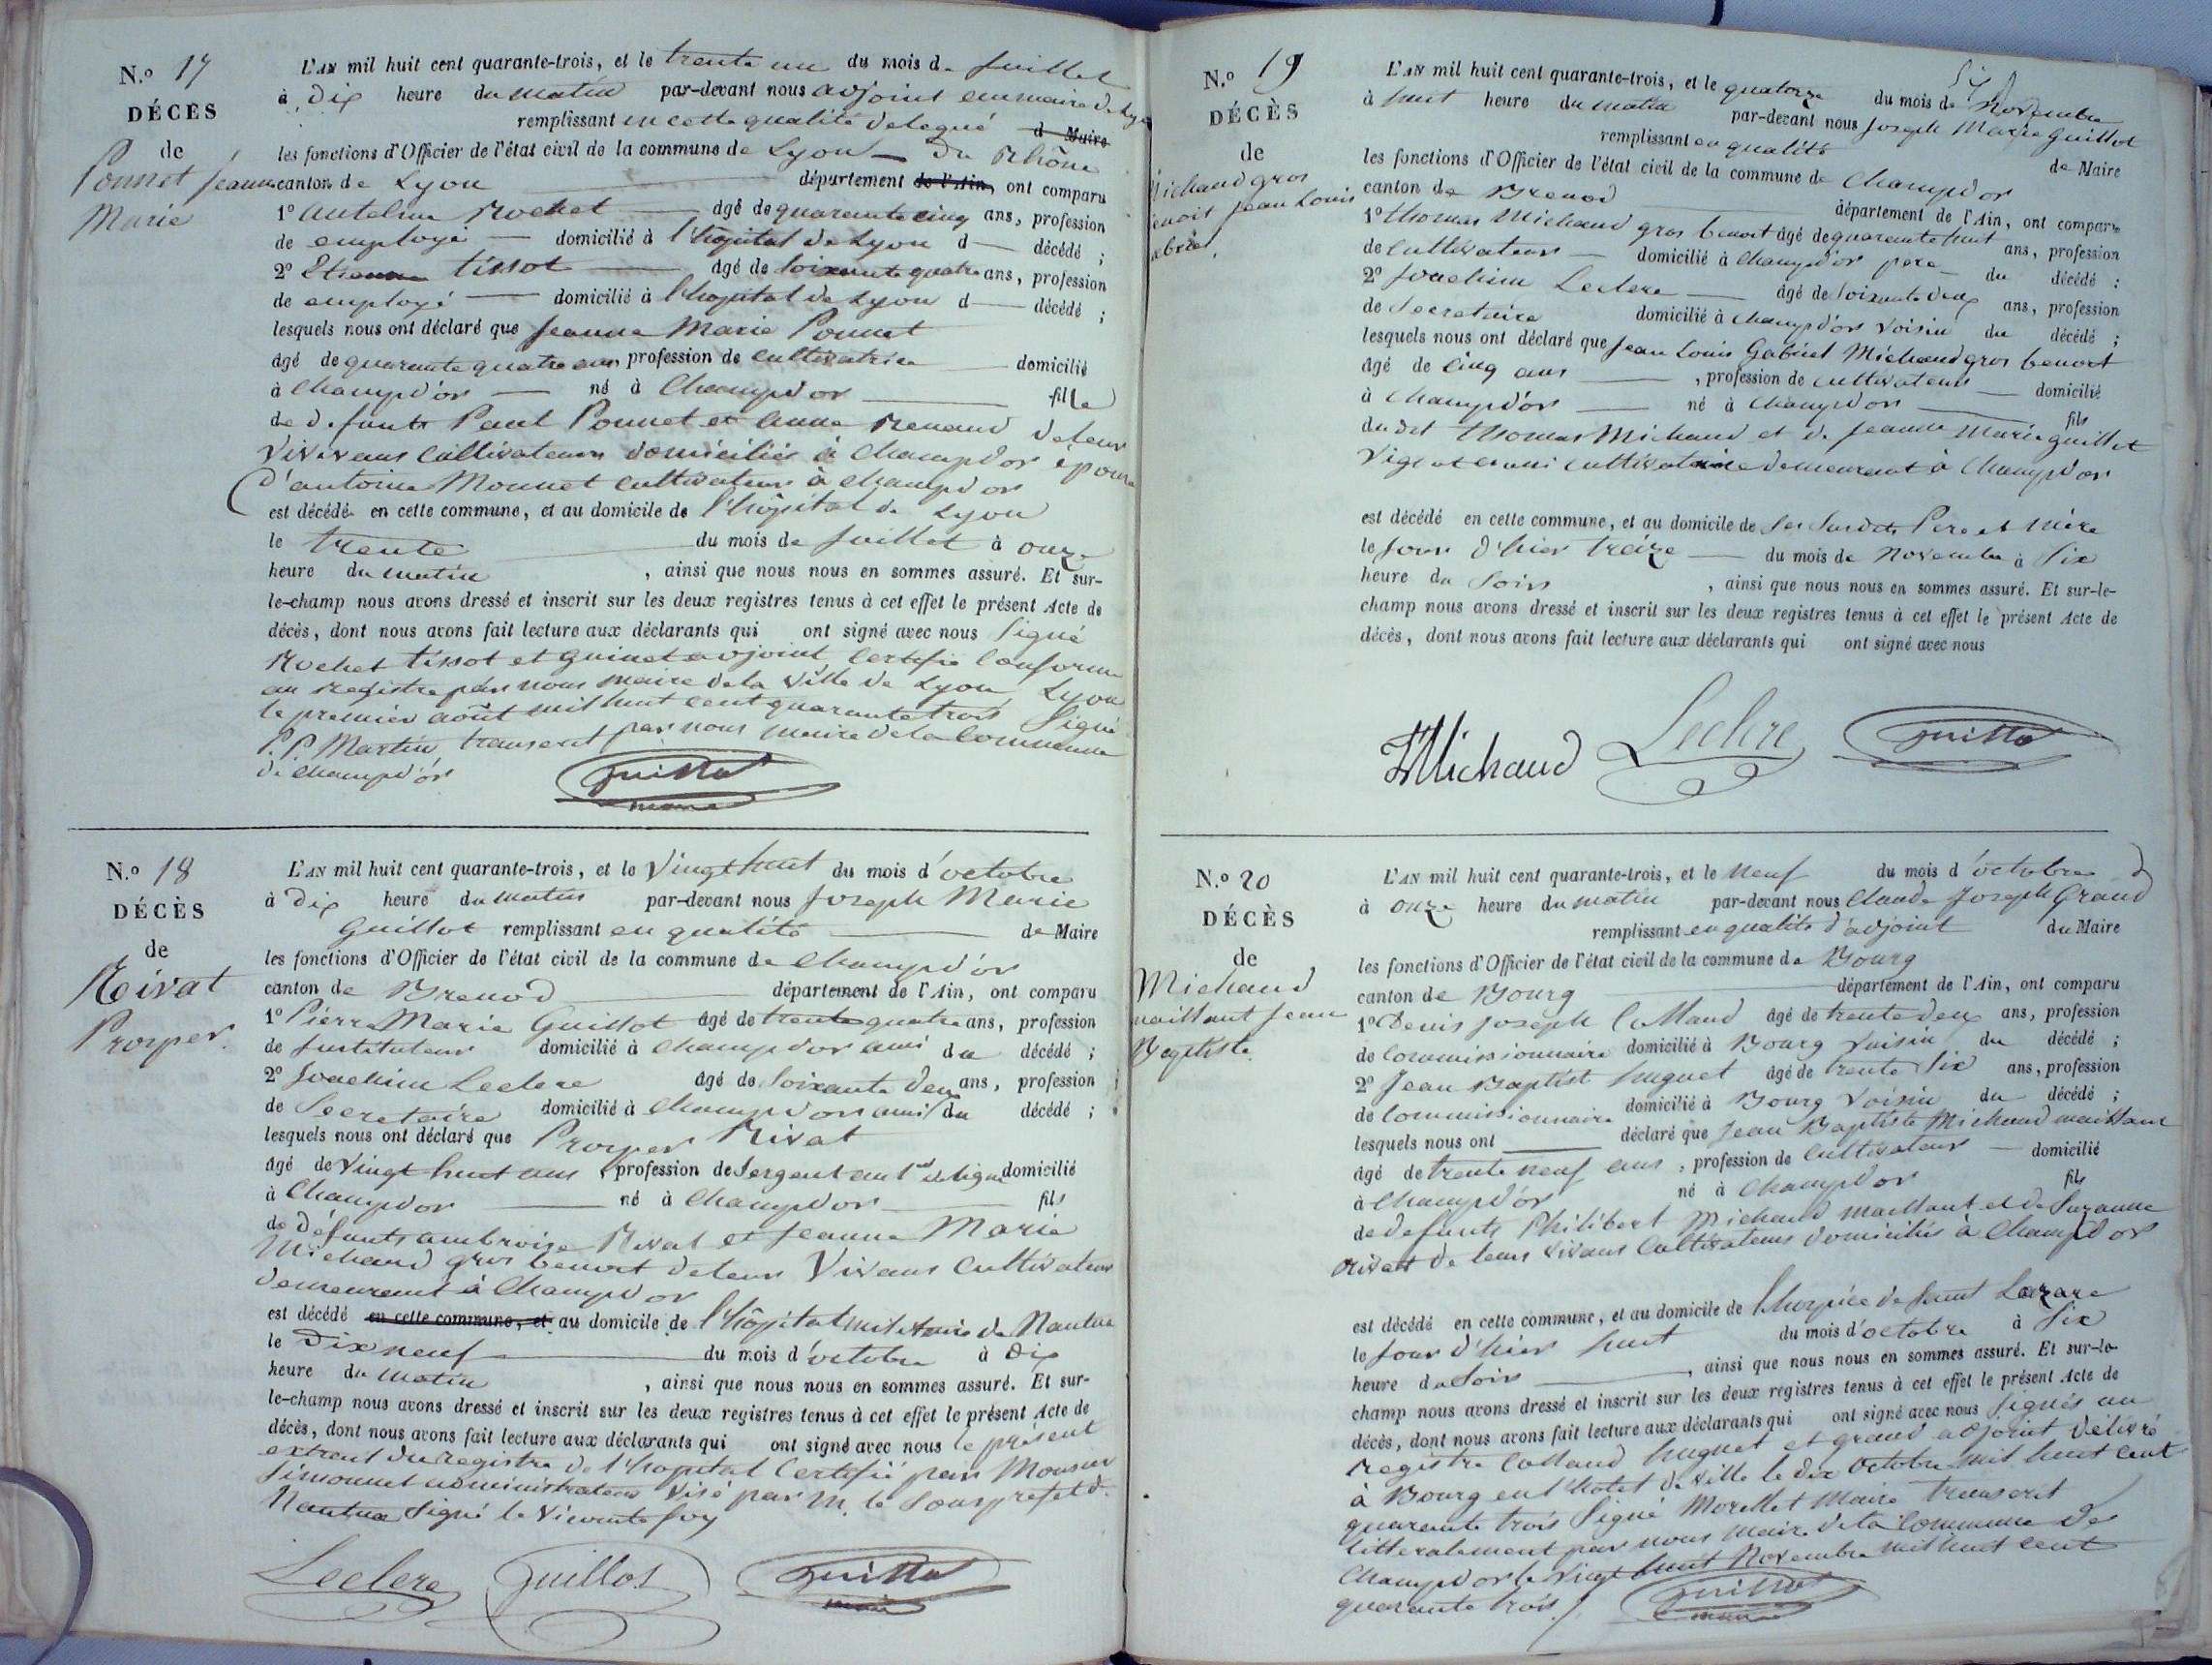 N.º 17
DÉCÈS
de
Ponnet Jeanne
Marie
L'AN mil huit cent quarante-trois, et le trente un du mois de Juillet
à Dix heure du matin par-devant nous adjoint au maire de Lyon
remplissant en cette qualité delegué d Maire
les fonctions d'Officier de l'état civil de la commune de Lyon — du Rhône
canton de Lyon département de l'Ain, ont comparu
1º antelme Rochet âgé de quarante cinq ans, profession
de employé domicilié à l'hôpital de Lyon d décédé ;
2º Etienne tissot âgé de soixante quatre ans, profession
de employé domicilié à l'hopital de Lyon d décédé ;
lesquels nous ont déclaré que Jeanne Marie Ponnet
âgé de quarante quatre ans profession de cultivatrice domicilié
à Champd'or né à Champd'or fille
de defunts Paul Ponnet et anne Renaud de leur
vivivans cultivateurs domiciliés à Champd'or épouse
d'antoine Monnet cultivateur à champd'or
est décédé en cette commune, et au domicile de l'hôpital de Lyon
le trente du mois de Juillet à onze
heure du matin , ainsi que nous nous en sommes assuré. Et sur-
le-champ nous avons dressé et inscrit sur les deux registres tenus à cet effet le présent Acte de
décès, dont nous avons fait lecture aux déclarants qui ont signé avec nous Signé
Rochet tissot et Guinet adjoint certifié conforme
au registre par nous maire de la ville de Lyon, Lyon
le premier août mil huit cent quarante trois Signé
P. P. Martin transcrit par nous maire de la Commune
de champd'or
Guillot
maire
N.º 18
DÉCÈS
de
Rivat
Prosper.
L'AN mil huit cent quarante-trois, et le vingt huit du mois d'octobre
à Dix heure du matin par-devant nous Joseph Marie
Guillot remplissant en qualité de Maire
les fonctions d'Officier de l'état civil de la commune de Champd'or
canton de Brenod département de l'Ain, ont comparu
1º Pierre Marie Guillot âgé de trente quatre ans, profession
de Instituteur domicilié à champd'or ami du décédé ;
2º Joachim Leclere âgé de soixante deux ans, profession
de Secretaire domicilié à Champd'or ami du décédé ;
lesquels nous ont déclaré que Prosper Rivat
âgé de vingt huit ans , profession de Sergent au 1er de ligne domicilié
à Champd'or né à Champd'or fils
de défunts ambroise Rivat et Jeanne Marie
Michaud gros benoit de leur Vivans Cultivateurs
demeurant à Champd'or
est décédé en cette commune, et au domicile de l'hôpital militaire de Nantua
le Dix neuf du mois d'octobre à Dix
heure du matin , ainsi que nous nous en sommes assuré. Et sur-
le-champ nous avons dressé et inscrit sur les deux registres tenus à cet effet le présent Acte de
décès, dont nous avons fait lecture aux déclarants qui ont signé avec nous le présent
extrait du registre de l'hopital Certifié par Monsieur
Simonnet administrateur visé par M. le Sousprefet de
Nantua Signé le Vicomte
Leclere Guillot Guillot
maire
N.º 19
DÉCÈS
de
Michaud gros
benoit Jean Louis
L'AN mil huit cent quarante-trois, et le quatorze du mois de Novembre
à huit heure du matin par-devant nous Joseph Marie Guillot
remplissant en qualité de Maire
les fonctions d'Officier de l'état civil de la commune de Champd'or
canton de Brenod département de l'Ain, ont comparu
1º thomas Michaud gros benoit âgé de quarante huit ans, profession
de cultivateur domicilié à Champd'or pere du décédé ;
2º Joachim Leclere âgé de soixante deux ans, profession
de Secretaire domicilié à Champd'or voisin du décédé ;
lesquels nous ont déclaré que Jean Louis Gabriel Michaud gros benoit
âgé de cinq ans , profession de cultivateur domicilié
à Champd'or né à Champd'or fils
du dit thomas Michaud et de Jeanne Marie Guillot
cultivatrice demeurant à Champd'or
est décédé en cette commune, et au domicile de ses Susdits Pere et Mère
le jour d'hier treize du mois de Novembre à Six
heure du Soir , ainsi que nous nous en sommes assuré. Et sur-le-
champ nous avons dressé et inscrit sur les deux registres tenus à cet effet le présent Acte de
décès, dont nous avons fait lecture aux déclarants qui ont signé avec nous
Michaud Leclere Guillot
N.º 20
DÉCÈS
de
Michaud
maillant Jean
Baptiste
L'AN mil huit cent quarante-trois, et le neuf du mois d'octobre
à onze heure du matin par-devant nous Claude Joseph Grand
remplissant en qualité d'adjoint du Maire
les fonctions d'Officier de l'état civil de la commune de Bourg
canton de Bourg département de l'Ain, ont comparu
1º Denis Joseph Colland âgé de trente deux ans, profession
de commissionnaire domicilié à Bourg Voisin du décédé ;
2º Jean Baptist huguet âgé de trente six ans, profession
de commissionnaire domicilié à Bourg Voisin du décédé ;
lesquels nous ont déclaré que Jean Baptiste Michaud maillant
âgé de trente neuf ans , profession de cultivateur domicilié
à Champd'or né à Champd'or fils
de defunts Philibert Michaud maillant et de Suzanne
Rivat de leurs vivans Cultivateurs domiciliés à Champd'or
est décédé en cette commune, et au domicile de l'hospice de Saint Lazare
le Jour d'hier huit du mois d'octobre à Six
heure du Soir , ainsi que nous nous en sommes assuré. Et sur-le-
champ nous avons dressé et inscrit sur les deux registres tenus à cet effet le présent Acte de
décès, dont nous avons fait lecture aux déclarants qui ont signé avec nous Signés au
registre Colland huguet et grand adjoint Délivré
à Bourg en l'hotel de Ville le dix octobre mil huit cent
quarante trois Signé Morellet Maire transcrit
litteralement par nous maire de la Commune de
Champd'or le vingt huit Novembre mil huit cent
quarante trois.
Guillot
maire